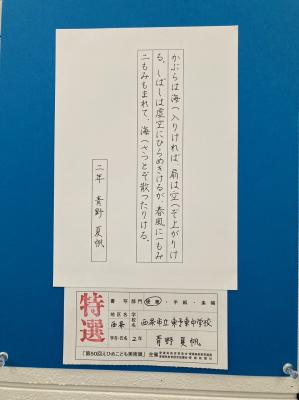 かぶらは海へ入りければ、扇は空へぞ上がりけ
る。しばしは虚空にひらめきけるが、春風に一もみ
二もみもまれて、海へさつとぞ散つたりける。
二年 青野 夏帆
特選
書写部門 硬筆・手紙・条幅
地区名 西条 学校名 西条市立東予東中学校
学年・氏名 2年 青野 夏帆
「第50回えひめこども美術展」主催